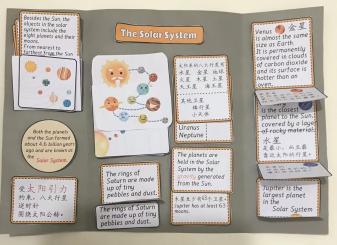 The Solar System
Besides the Sun, the
objects in the solar
system include the
eight planets and their
moons.
From nearest to
farthest from the Sun
Both the planets
and the Sun formed
about 4.6 billion years
ago and are known as
the
Solar System.
受太阳引力
约束，八大行星
逆时针
围绕太阳公转。
The rings of
Saturn are made up
of tiny
pebbles and dust.
The rings of
Saturn are made up of
tiny pebbles and dust.
太阳系的八大行星有
水星 金星 地球
火星 木星 土星
天王星 海王星
其他卫星
矮行星
小天体
Uranus
Neptune
The planets are
held in the Solar
System by the
gravity generated
from the Sun.
木星至少有63个卫星。
Jupiter has at least 63
moons.
Venus 金星
is almost the same
size as Earth.
It is permanently
covered in clouds
of carbon dioxide
and its surface is
hotter than an
oven.
is the closest
planet to the Sun,
covered by a layer
of rocky materials.
水星
Jupiter is the largest
planet in the
Solar System